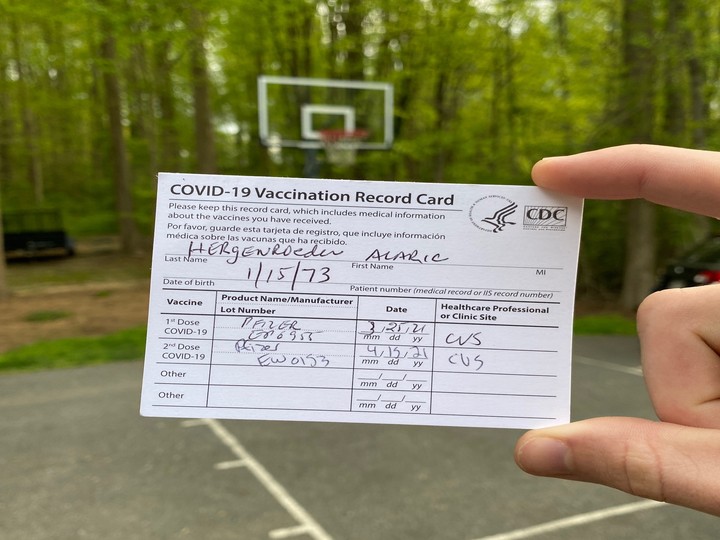 COVID-19 Vaccination Record Card
Please keep this record card, which includes medical information
about the vaccines you have received.
Por favor, guarde esta tarjeta de registro, que incluye información
médica sobre las vacunas que ha recibido.
CDC
HERGENROEDER ALARIC
Last Name First Name MI
1/15/73
Date of birth Patient number (medical record or IIS record number)
Vaccine Product Name/Manufacturer Date Healthcare Professional
Lot Number or Clinic Site
1st Dose PFIZER 3/25/21 CVS
COVID-19 mm dd yy
2nd Dose Pfizer 4/15/21 CVS
COVID-19 EW0153 mm dd yy
Other
mm dd yy
Other
mm dd yy